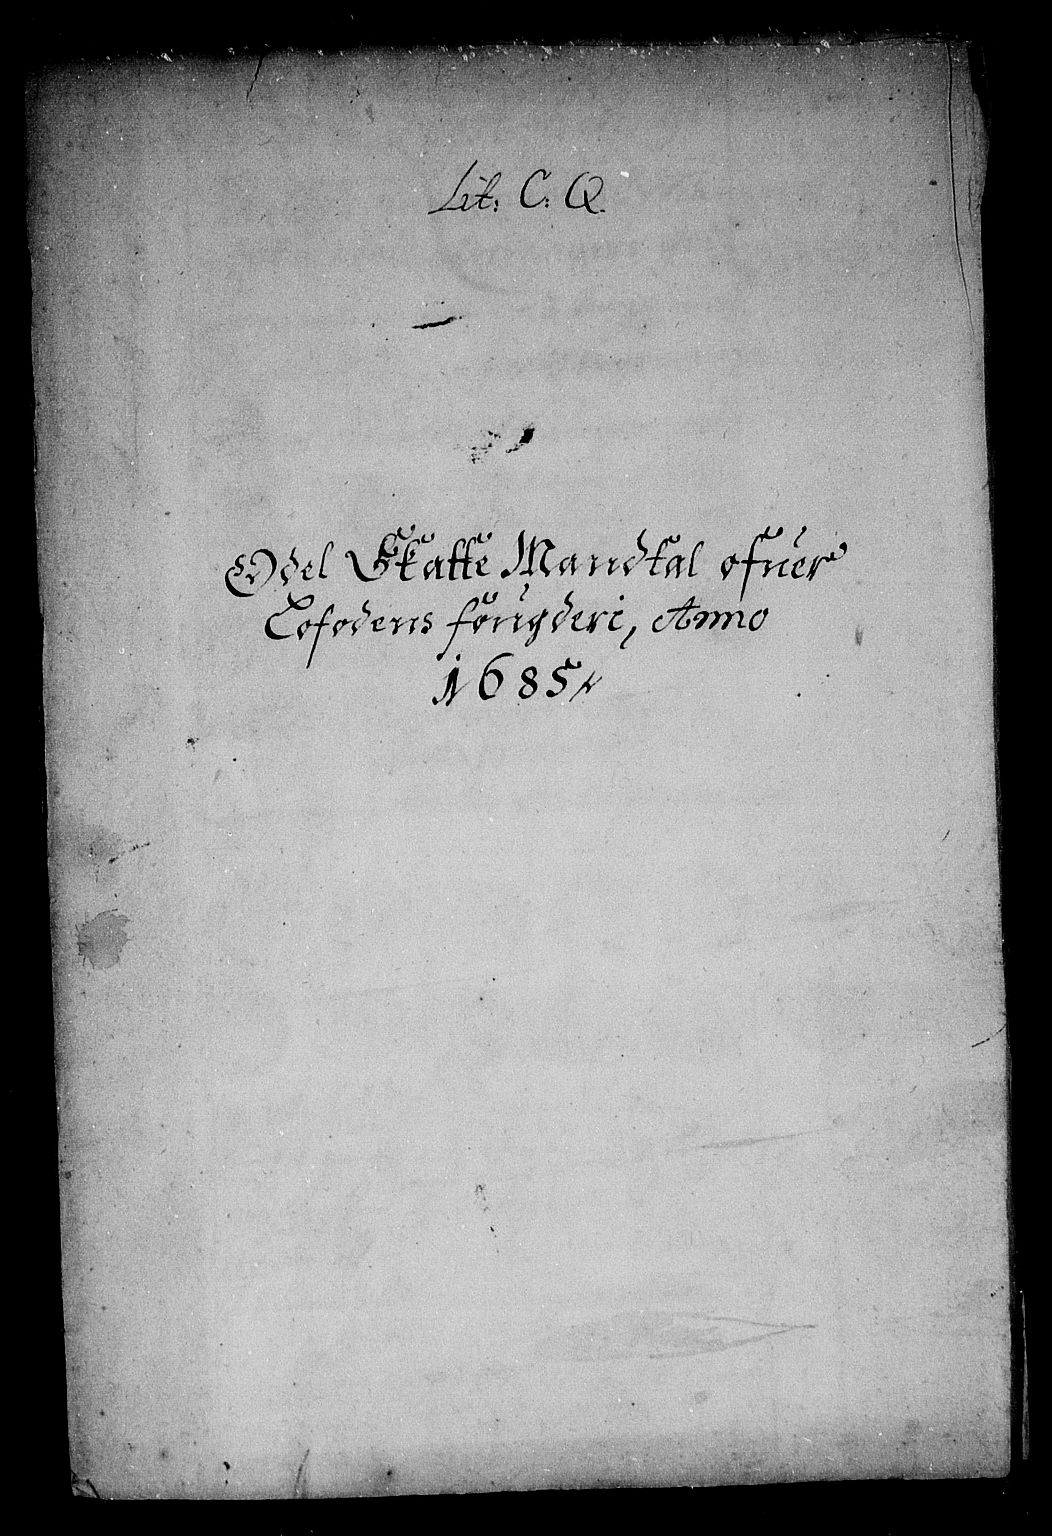 Lit: C: Q.
Odel Skatte Mandtal ofuer
Lofodens fougderi, Anno
1685